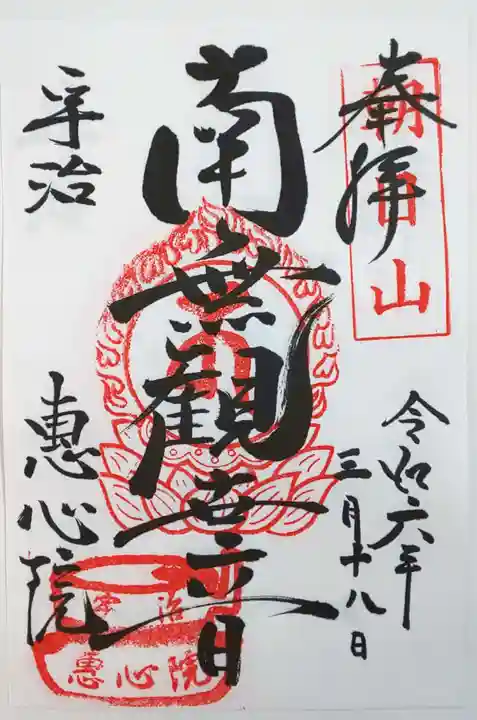 奉拝
朝日山
令和六年
三月十八日
南無観世音
宇治
恵心院
宇治
恵心院